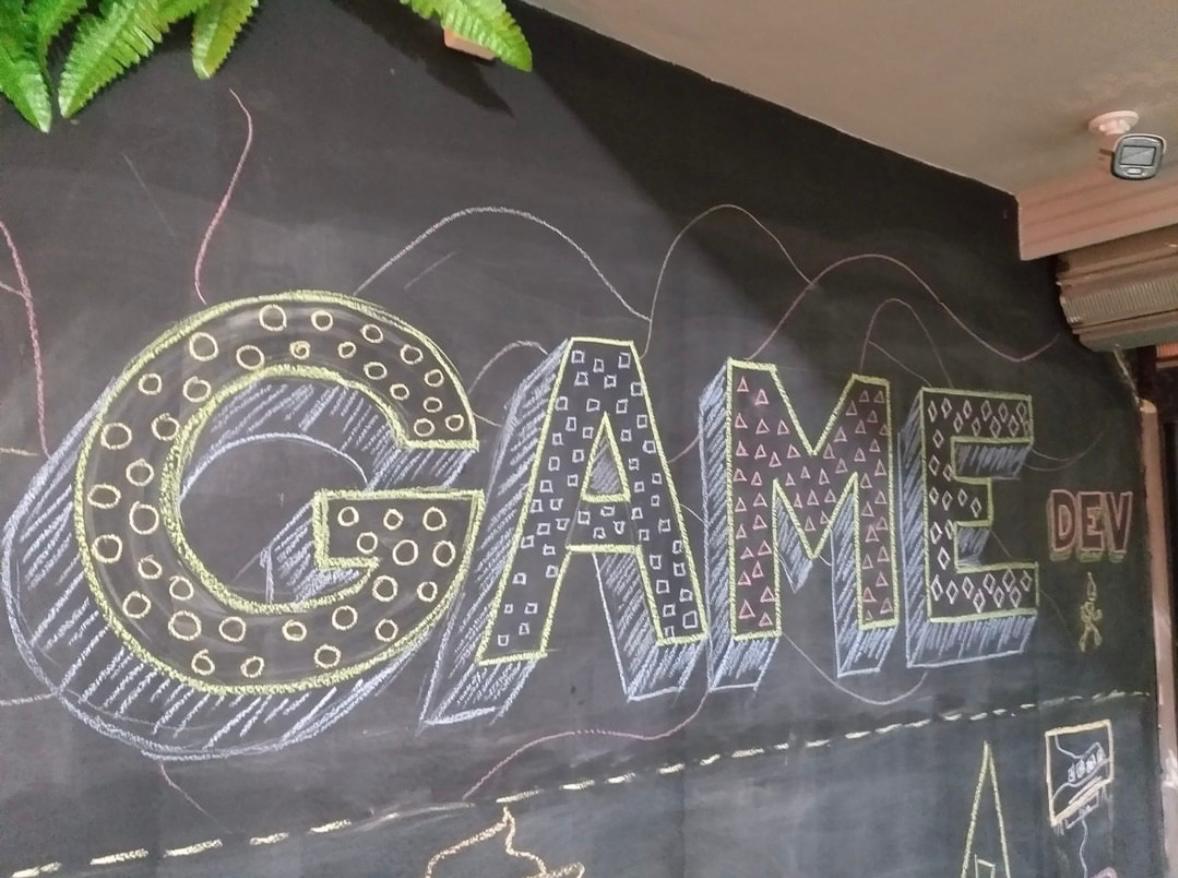 GAME
DEV